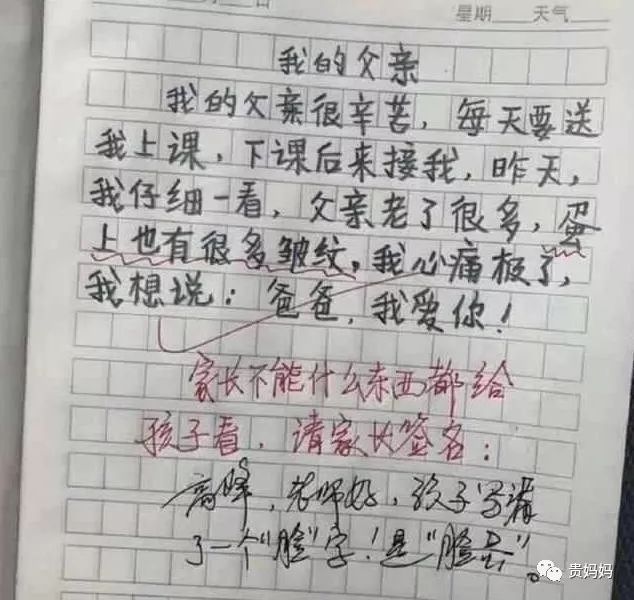 日 星期 天气
我的父亲
我的父亲很辛苦，每天要送
我上课，下课后来接我，昨天，
我仔细一看，父亲老了很多，蛋
上也有很多皱纹，我心痛极了，
我想说：爸爸，我爱你！
家长不能什么东西都给
孩子看，请家长签名：
高峰，老师好，孩子写漏
了一个"脸"字！是"脸蛋"。
贵妈妈